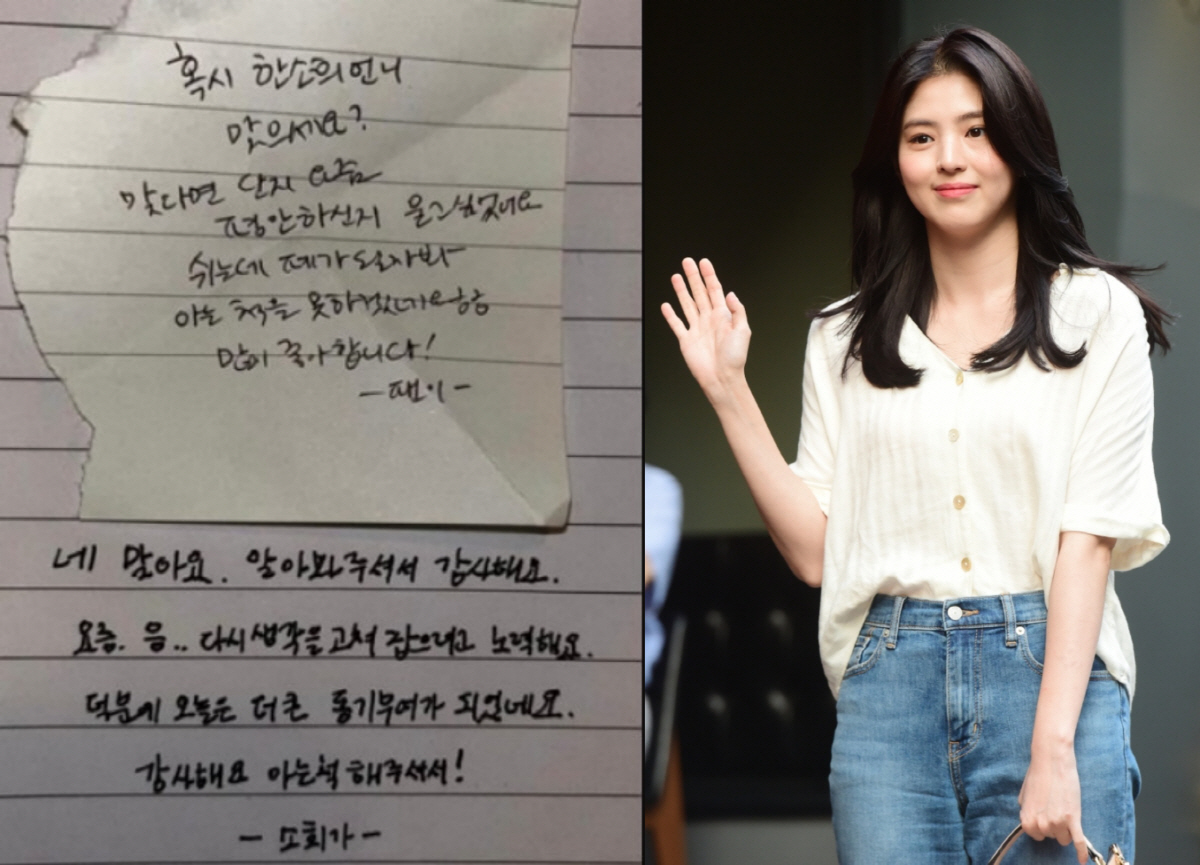 혹시 한소희언니
맞으세요?
맞다면 단지 요즘
평안하신지 묻고싶었네요
쉬는데 폐가 될까봐
아는 척을 못하겠네요ㅎㅎ
많이 좋아합니다!
- 팬이 -
네 맞아요. 알아봐주셔서 감사해요.
요즘. 음.. 다시 생각을 고쳐 잡으려고 노력해요.
덕분에 오늘은 더 큰 동기부여가 되었네요.
감사해요 아는척 해주셔서!
- 소희가 -